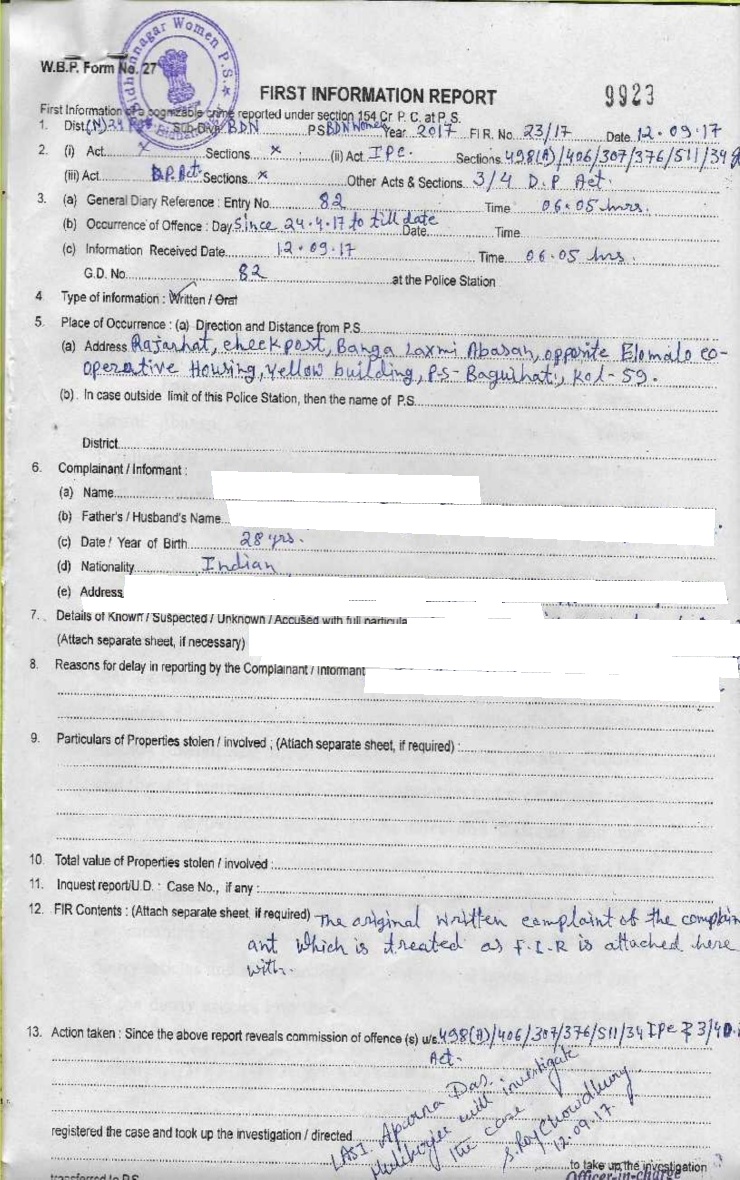 Bidhannagar Women P.S.
W.B.P. Form No. 27
FIRST INFORMATION REPORT
9923
First Information of a cognizable crime reported under section 154 Cr. P. C. at P. S.
1. Dist. (N) Sub-Divn. BDN P.S. BDN Women Year 2017 F.I.R. No. 23/17 Date 12.09.17
2. (i) Act x Sections x (ii) Act I.P.C. Sections 498(A)/406/307/376/511/34
(iii) Act D.P. Act Sections x Other Acts & Sections 3/4 D.P Act.
3. (a) General Diary Reference : Entry No. 82 Time 06.05 hrs.
(b) Occurrence of Offence : Day Since 24.4.17 to till date Date Time
(c) Information Received Date 12.09.17 Time 06.05 hrs.
G.D. No. 82 at the Police Station
4 Type of information : Written / Oral
5. Place of Occurrence : (a) Direction and Distance from P.S.
(a) Address Rajarhat, checkpost, Banga Laxmi Abasan, opposite Elomalo co-
operative Housing, yellow building, P.S- Baguihati, Kol-59.
(b). In case outside limit of this Police Station, then the name of P.S.
District
6. Complainant / Informant :
(a) Name
(b) Father's / Husband's Name
(c) Date / Year of Birth 28 yrs.
(d) Nationality Indian
(e) Address
7. Details of Known / Suspected / Unknown / Accused with full particula
(Attach separate sheet, if necessary)
8. Reasons for delay in reporting by the Complainant / Informant
9. Particulars of Properties stolen / involved ; (Attach separate sheet, if required) :
10. Total value of Properties stolen / involved :
11. Inquest report/U.D. : Case No., if any :
12. FIR Contents : (Attach separate sheet, if required) The original written complaint of the complain
ant which is treated as F.I.R is attached here
with.
13. Action taken : Since the above report reveals commission of offence (s) u/s. 498(A)/406/307/376/511/34 IPC & 3/4 D.
Act.
LASI. Aparna Das
Mukherjee will investigate
the case
S. Roy Chowdhury
12.09.17.
registered the case and took up the investigation / directed
to take up the investigation
Officer-in-charge
transferred to P.S.